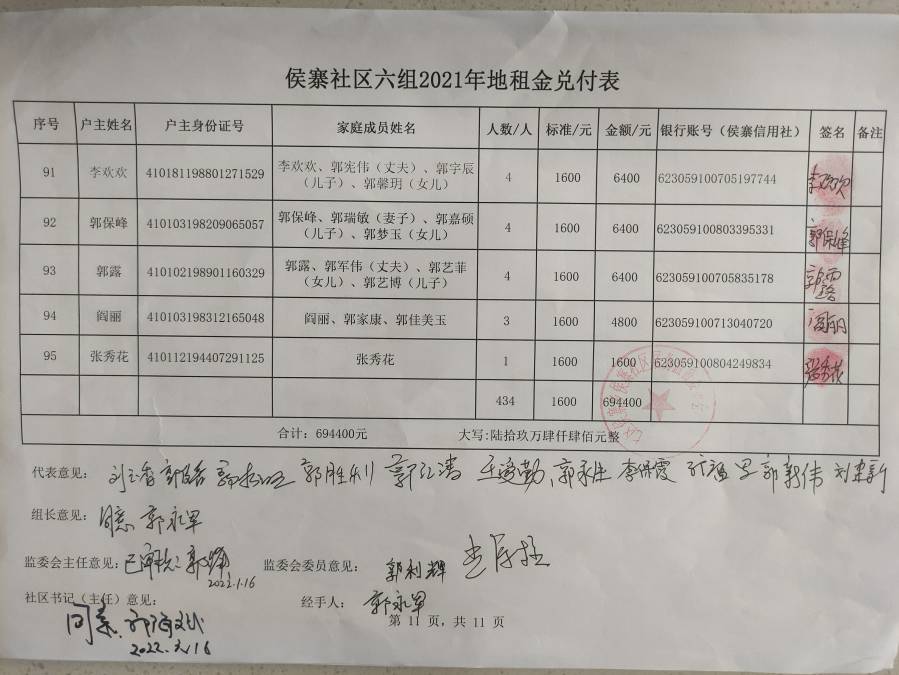 侯寨社区六组2021年地租金兑付表
序号 户主姓名 户主身份证号 家庭成员姓名 人数/人 标准/元 金额/元 银行账号（侯寨信用社） 签名 备注
91 李欢欢 410181198801271529 李欢欢、郭宪伟（丈夫）、郭宇辰（儿子）、郭馨玥（女儿） 4 1600 6400 623059100705197744 李欢欢
92 郭保峰 410103198209065057 郭保峰、郭瑞敏（妻子）、郭嘉硕（儿子）、郭梦玉（女儿） 4 1600 6400 623059100803395331 郭保峰
93 郭露 410102198901160329 郭露、郭军伟（丈夫）、郭艺菲（女儿）、郭艺博（儿子） 4 1600 6400 623059100705835178 郭露
94 阎丽 410103198312165048 阎丽、郭家康、郭佳美玉 3 1600 4800 623059100713040720 阎丽
95 张秀花 410112194407291125 张秀花 1 1600 1600 623059100804249834 张秀花
434 1600 694400
合计：694400元 大写:陆拾玖万肆仟肆佰元整
代表意见： 郭胜利 郭江涛 王爱勤、郭永生 李保霞 郭新伟 刘建新
组长意见： 同意 郭永军
监委会主任意见： 已审核 2022.1.16 监委会委员意见： 郭利辉
社区书记（主任）意见： 经手人： 郭永军
同意. 第 11 页，共 11 页
2022.1.16